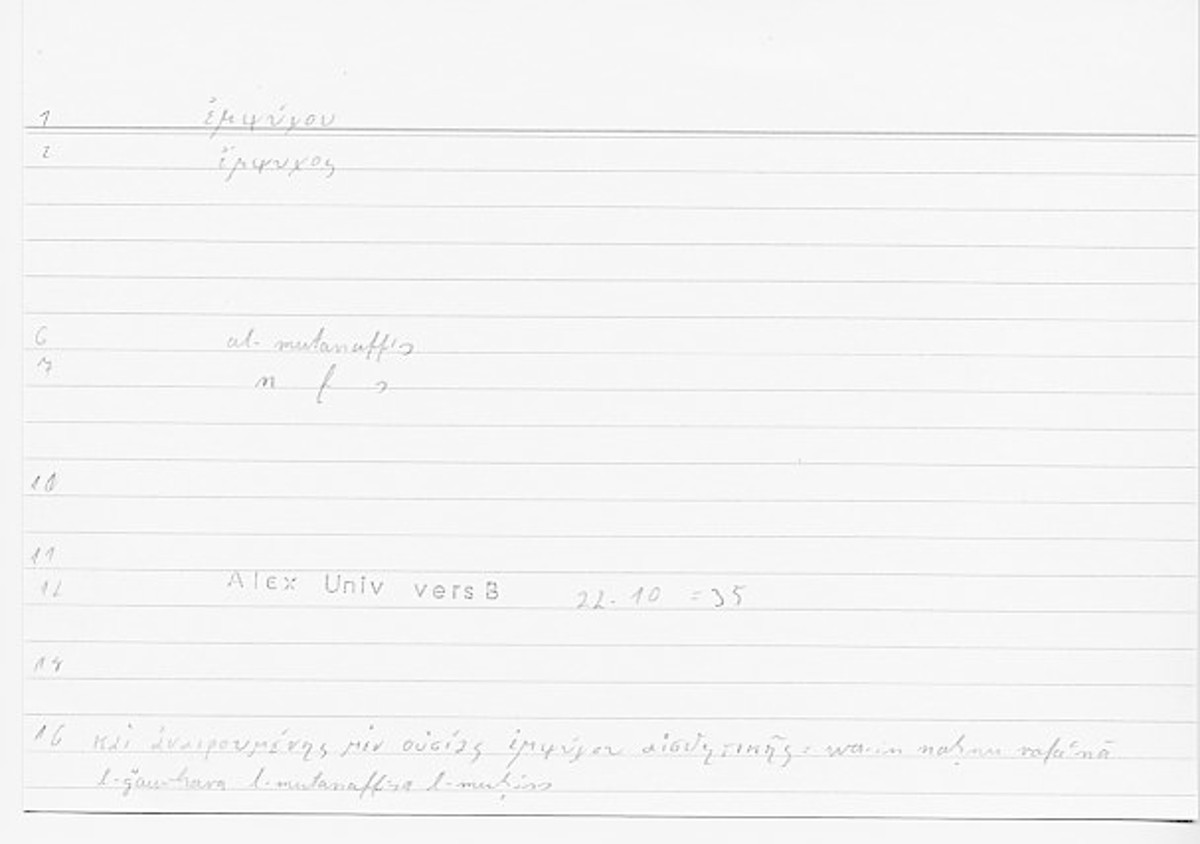 1 ἐμψύχου
2 ἔμψυχος
6 al-mutanaffis
7 n f s
10
11
12 Alex Univ vers B 22.10 = 35
14
16 καὶ ἀναιρουμένης μὲν οὐσίας ἐμψύχου αἰσθητικῆς: wa-in naḥnu rafaʿnā
l-ǧauhara l-mutanaffisa l-muḥiss